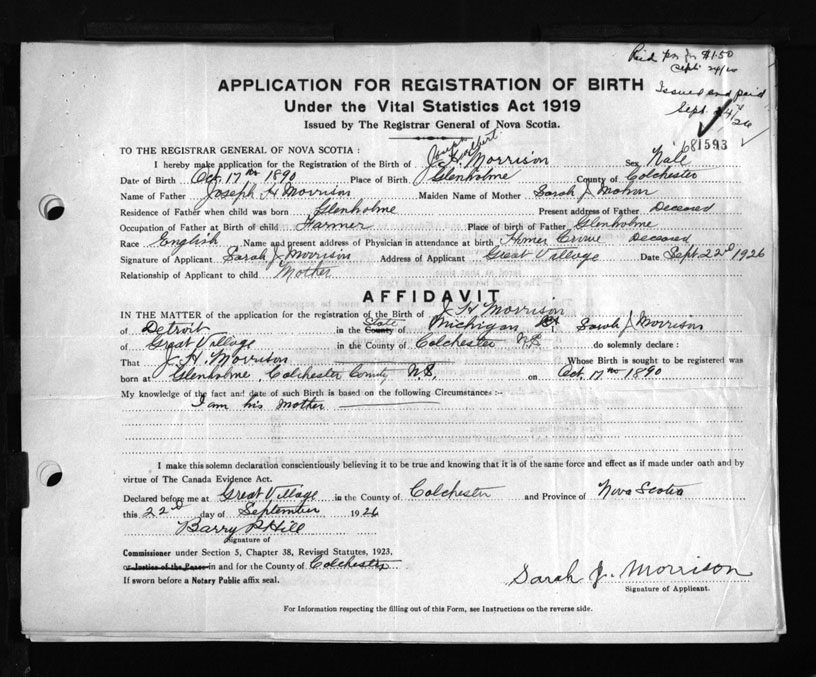 Paid $1.50
Sept 24/26
APPLICATION FOR REGISTRATION OF BIRTH
Issued and paid
Under the Vital Statistics Act 1919
Sept. 24/26
Issued by The Registrar General of Nova Scotia.
681593
TO THE REGISTRAR GENERAL OF NOVA SCOTIA :
Joseph
I hereby make application for the Registration of the Birth of J. H. Morrison Sex Male
Date of Birth Oct. 17th 1890 Place of Birth Glenholme County of Colchester
Name of Father Joseph H Morrison Maiden Name of Mother Sarah J
Residence of Father when child was born Glenholme Present address of Father Deceased
Occupation of Father at Birth of child Farmer Place of birth of Father Glenholme
Race English Name and present address of Physician in attendance at birth Crowe Deceased
Signature of Applicant Sarah J. Morrison Address of Applicant Great Village Date Sept. 22d 1926
Relationship of Applicant to child Mother
AFFIDAVIT
IN THE MATTER of the application for the registration of the Birth of J. H. Morrison
of Detroit in the State County of Michigan I, Sarah J. Morrison
of Great Village in the County of Colchester N.S. do solemnly declare :
That J. H. Morrison Whose Birth is sought to be registered was
born at Glenholme, Colchester County N.S. on Oct. 17th 1890
My knowledge of the fact and date of such Birth is based on the following Circumstances :-
I am his mother
I make this solemn declaration conscientiously believing it to be true and knowing that it is of the same force and effect as if made under oath and by
virtue of The Canada Evidence Act.
Declared before me at Great Village in the County of Colchester and Province of Nova Scotia
this 22d day of September 1926
Barry P Hill
Signature of
Commissioner under Section 5, Chapter 38, Revised Statutes, 1923,
or Justice of the Peace in and for the County of Colchester
If sworn before a Notary Public affix seal.
Sarah J. Morrison
Signature of Applicant.
For Information respecting the filling out of this Form, see Instructions on the reverse side.